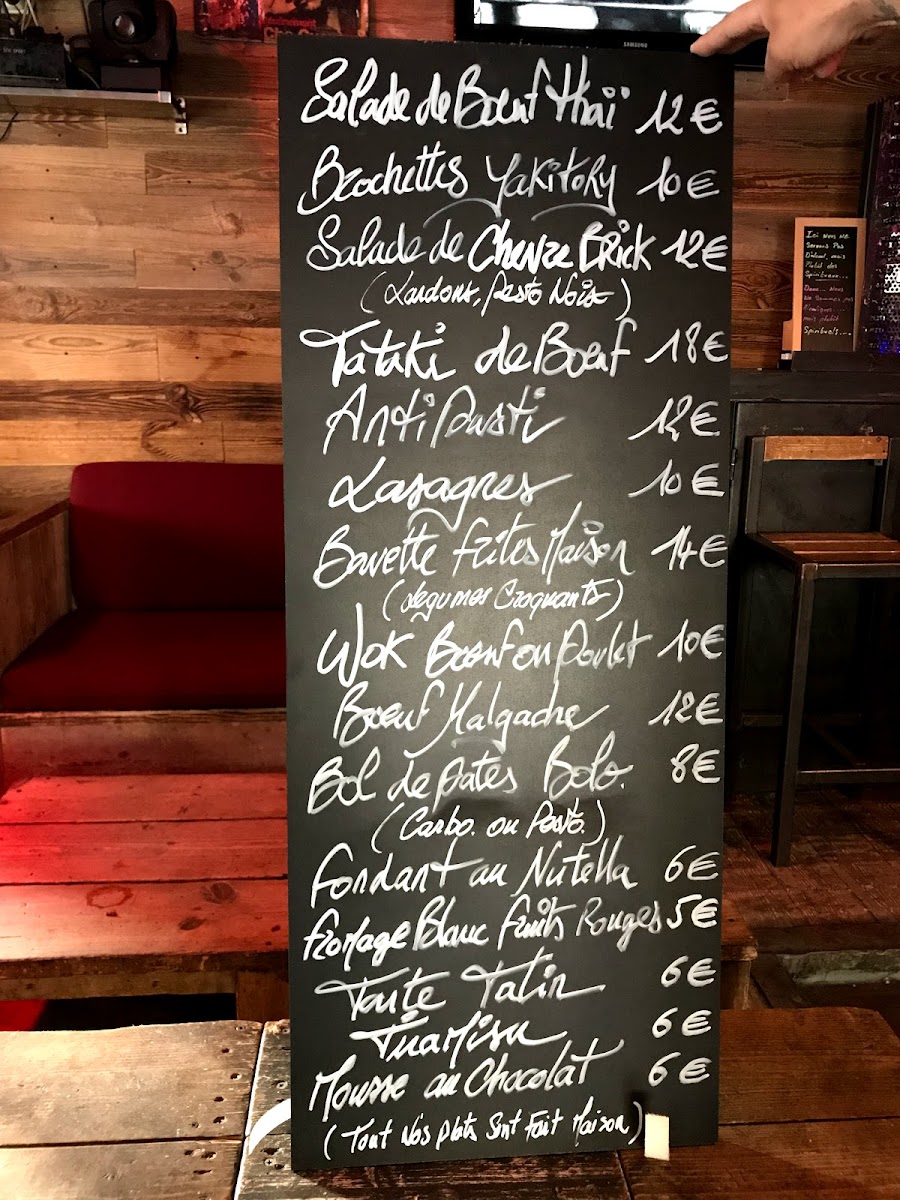 SAMSUNG
Salade de Bœuf thaï 12€
Brochettes Yakitory 10€
Salade de Chevre Brick 12€
(Lardons, Pesto Noix)
Tataki de Bœuf 18€
Anti Pasti 12€
Lasagnes 10€
Bavette frites Maison 14€
(Legumes Croquants)
Wok Bœuf ou Poulet 10€
Bœuf Malgache 12€
Bol de pates Bolo. 8€
(Carbo. ou Pesto.)
Fondant au Nutella 6€
Fromage Blanc Fruits Rouges 5€
Tarte Tatin 6€
Tiramisu 6€
Mousse au Chocolat 6€
(Tout Nos plats Sont Fait Maison)
Ici Nous Ne
Servons Pas
D'alcool, mais
Plutôt des
Spiritueux...
Donc... Nous
Ne Sommes pas
mais plutôt
Spirituels...